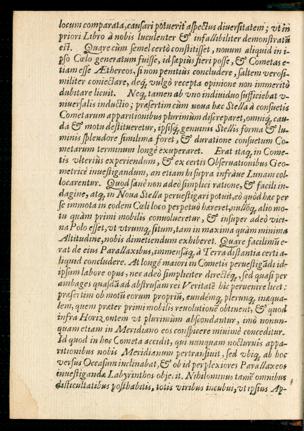 locum comparata, causari potuerit aspectus diuersitatem; vt in
priori Libro à nobis luculenter & infallibiliter demonstratũ
est. Quare cùm semel certò constitisset, nouum aliquid in i-
pso Cœlo generatum fuisse, id sæpius fieri posse, & Cometas e-
tiam esse Æthereos, si non penitius concludere, saltem verosi-
militer coniectare, deq́; vulgò recepta opinione non immeritò
dubitare licuit. Neq; tamen ab vno indiuiduo sufficiebat v-
niuersalis inductio; præsertim cùm noua hæc Stella à consuetis
Cometarum apparitionibus plurimùm discreparet, omniq́; cau-
da & motu destitueretur, ipsisq́; genuinis Stellis forma & lu-
minis splendore simillima foret, & duratione consuetum Co-
metarum terminum longè exuperaret. Erat itaq; in Come-
tis vlterius experiendum, & ex certis Obseruationibus Geo-
metricè inuestigandum, an etiam hi supra infráue Lunam col-
locarentur. Quod sanè non adeò simplici ratione, & facili in-
dagine, atq; in Noua Stella peruestigari potuit, eò quòd hæc per
se immota in eodem Cœli loco perpetuò hæreret, nulloq́; alio mo-
tu quàm primi mobilis conuolueretur, & insuper adeò vici-
na Polo esset, vt vtrumq́; situm, tam in maxima quàm minima
Altitudine, nobis dimetiendum exhiberet. Quare facilimũ e-
rat de eius Parallaxibus, immensaq́; à Terra distantia certi a-
liquid concludere. At longè maiori in Cometis peruestigãdi id-
ipsum labore opus, nec adeò simpliciter directéq́;, sed quasi per
ambages quasdã ad abstrusam rei Veritatẽ hic peruenire licet:
præsertim ob motũ eorum proprium, eundémq́; plerunq́; inæqua-
lem, quem præter primi mobilis reuolutionẽ obtinent, & quod
infra Horizontem vt plurimùm abscondantur, imò nonun-
quam etiam in Meridiano eos conspicere minimè conceditur.
Id quod in hoc Cometa accidit, qui nunquam nocturnis appa-
ritionibus nobis Meridianum pertransiuit, sed vbiq; ab hoc
versus Occasum inclinabat, & ob id perplexiores Parallaxeos
inuestigandæ Labyrinthos obiecit. Nihilominus tamẽ omnibus
difficultatibus posthabitis, totis viribus incubui, vt ipsius Ap-